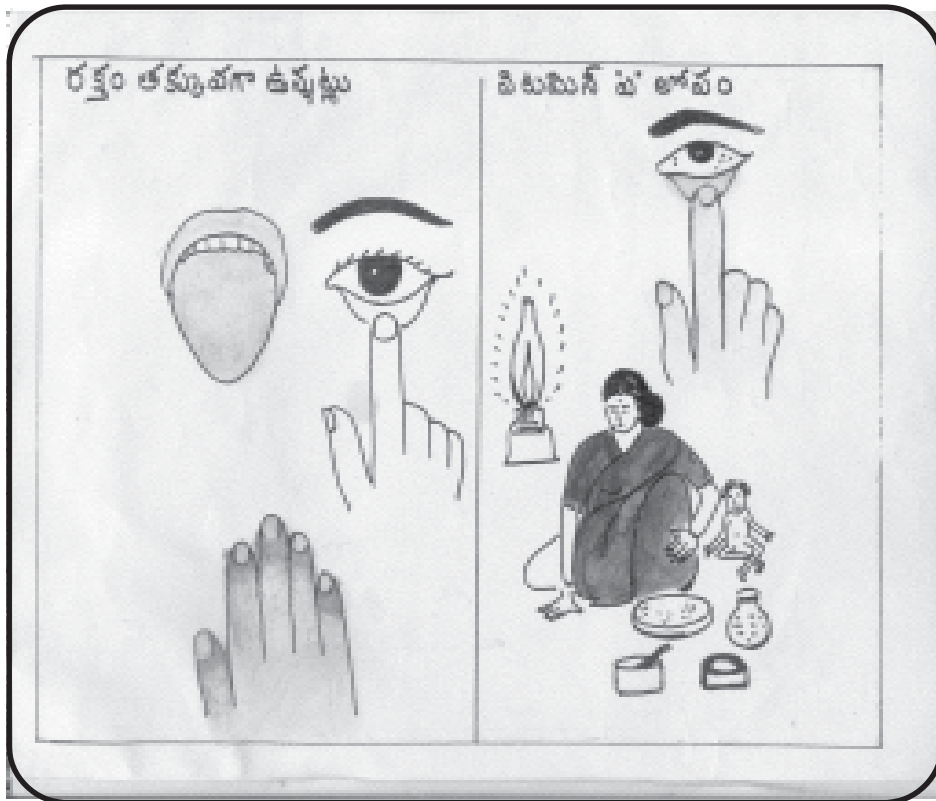 రక్తం తక్కువగా ఉన్నట్లు
విటమిన్ 'ఏ' లోపం